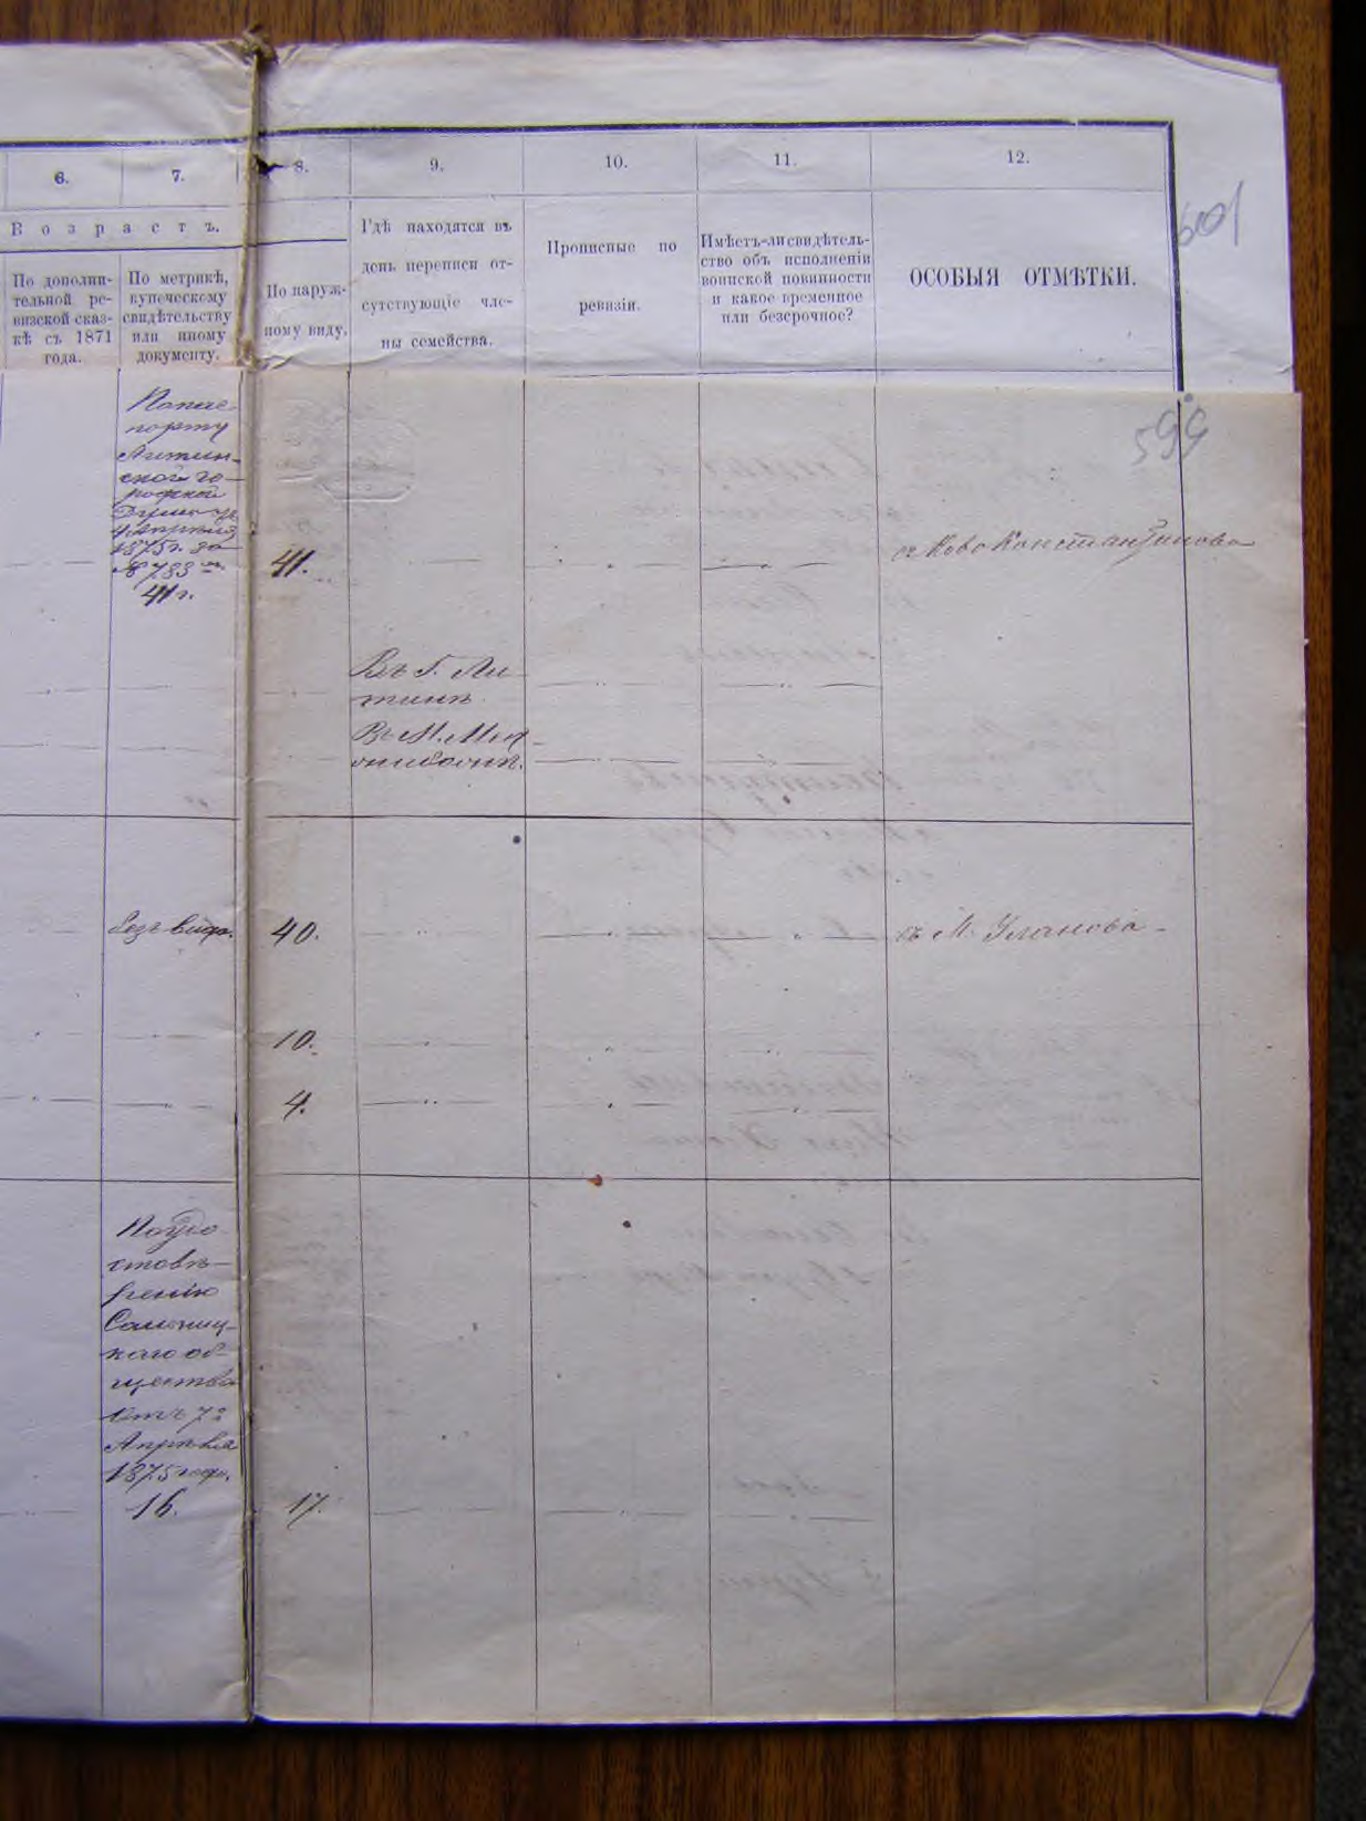 6.
7.
8.
9.
10.
11.
12.
601
Возрастъ.
По дополни-
тельной ре-
визской сказ-
кѣ съ 1871
года.
По метрикѣ,
купеческому
свидѣтельству
или иному
документу.
По наруж-
ному виду.
Гдѣ находятся въ
день переписи от-
сутствующіе чле-
ны семейства.
Прописные по
ревизіи.
Имѣетъ-ли свидѣтель-
ство объ исполненіи
воинской повинности
и какое временное
или безсрочное?
ОСОБЫЯ ОТМѢТКИ.
599
Литин-
ской го-
1875 г. за
№ 783
41 г.
41.
Ново Константинова
Въ Г. Ли-
тинѣ
Въ М.
безъ вида.
40.
съ М. Уланова
10.
4.
По удо
стовѣ-
ренію
каго об-
щества
отъ 7го
Апрѣля
1875 года.
16.
17.